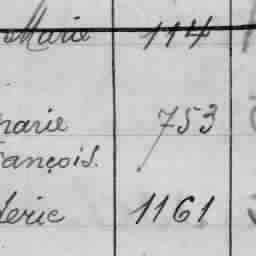 Marie 114
marie 753
rançois.
deric 1161